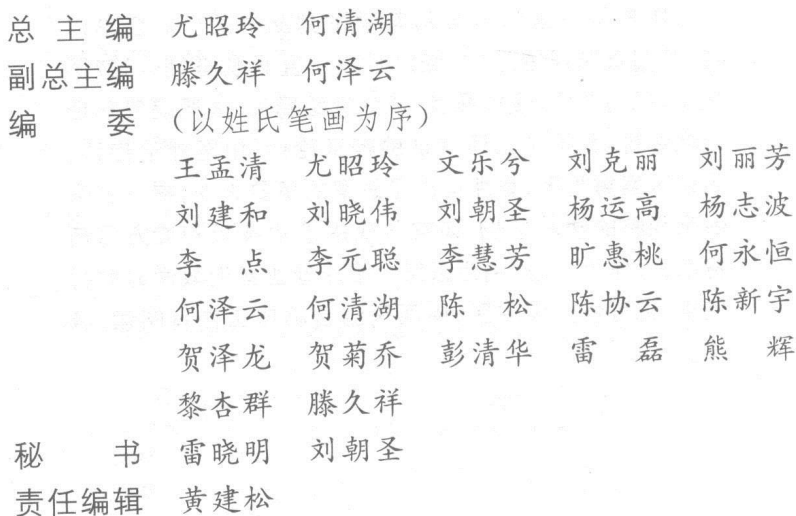 总 主 编 尤昭玲 何清湖
副总主编 滕久祥 何泽云
编 委 (以姓氏笔画为序)
王孟清 尤昭玲 文乐兮 刘克丽 刘丽芳
刘建和 刘晓伟 刘朝圣 杨运高 杨志波
李 点 李元聪 李慧芳 旷惠桃 何永恒
何泽云 何清湖 陈 松 陈协云 陈新宇
贺泽龙 贺菊乔 彭清华 雷 磊 熊 辉
黎杏群 滕久祥
秘 书 雷晓明 刘朝圣
责任编辑 黄建松